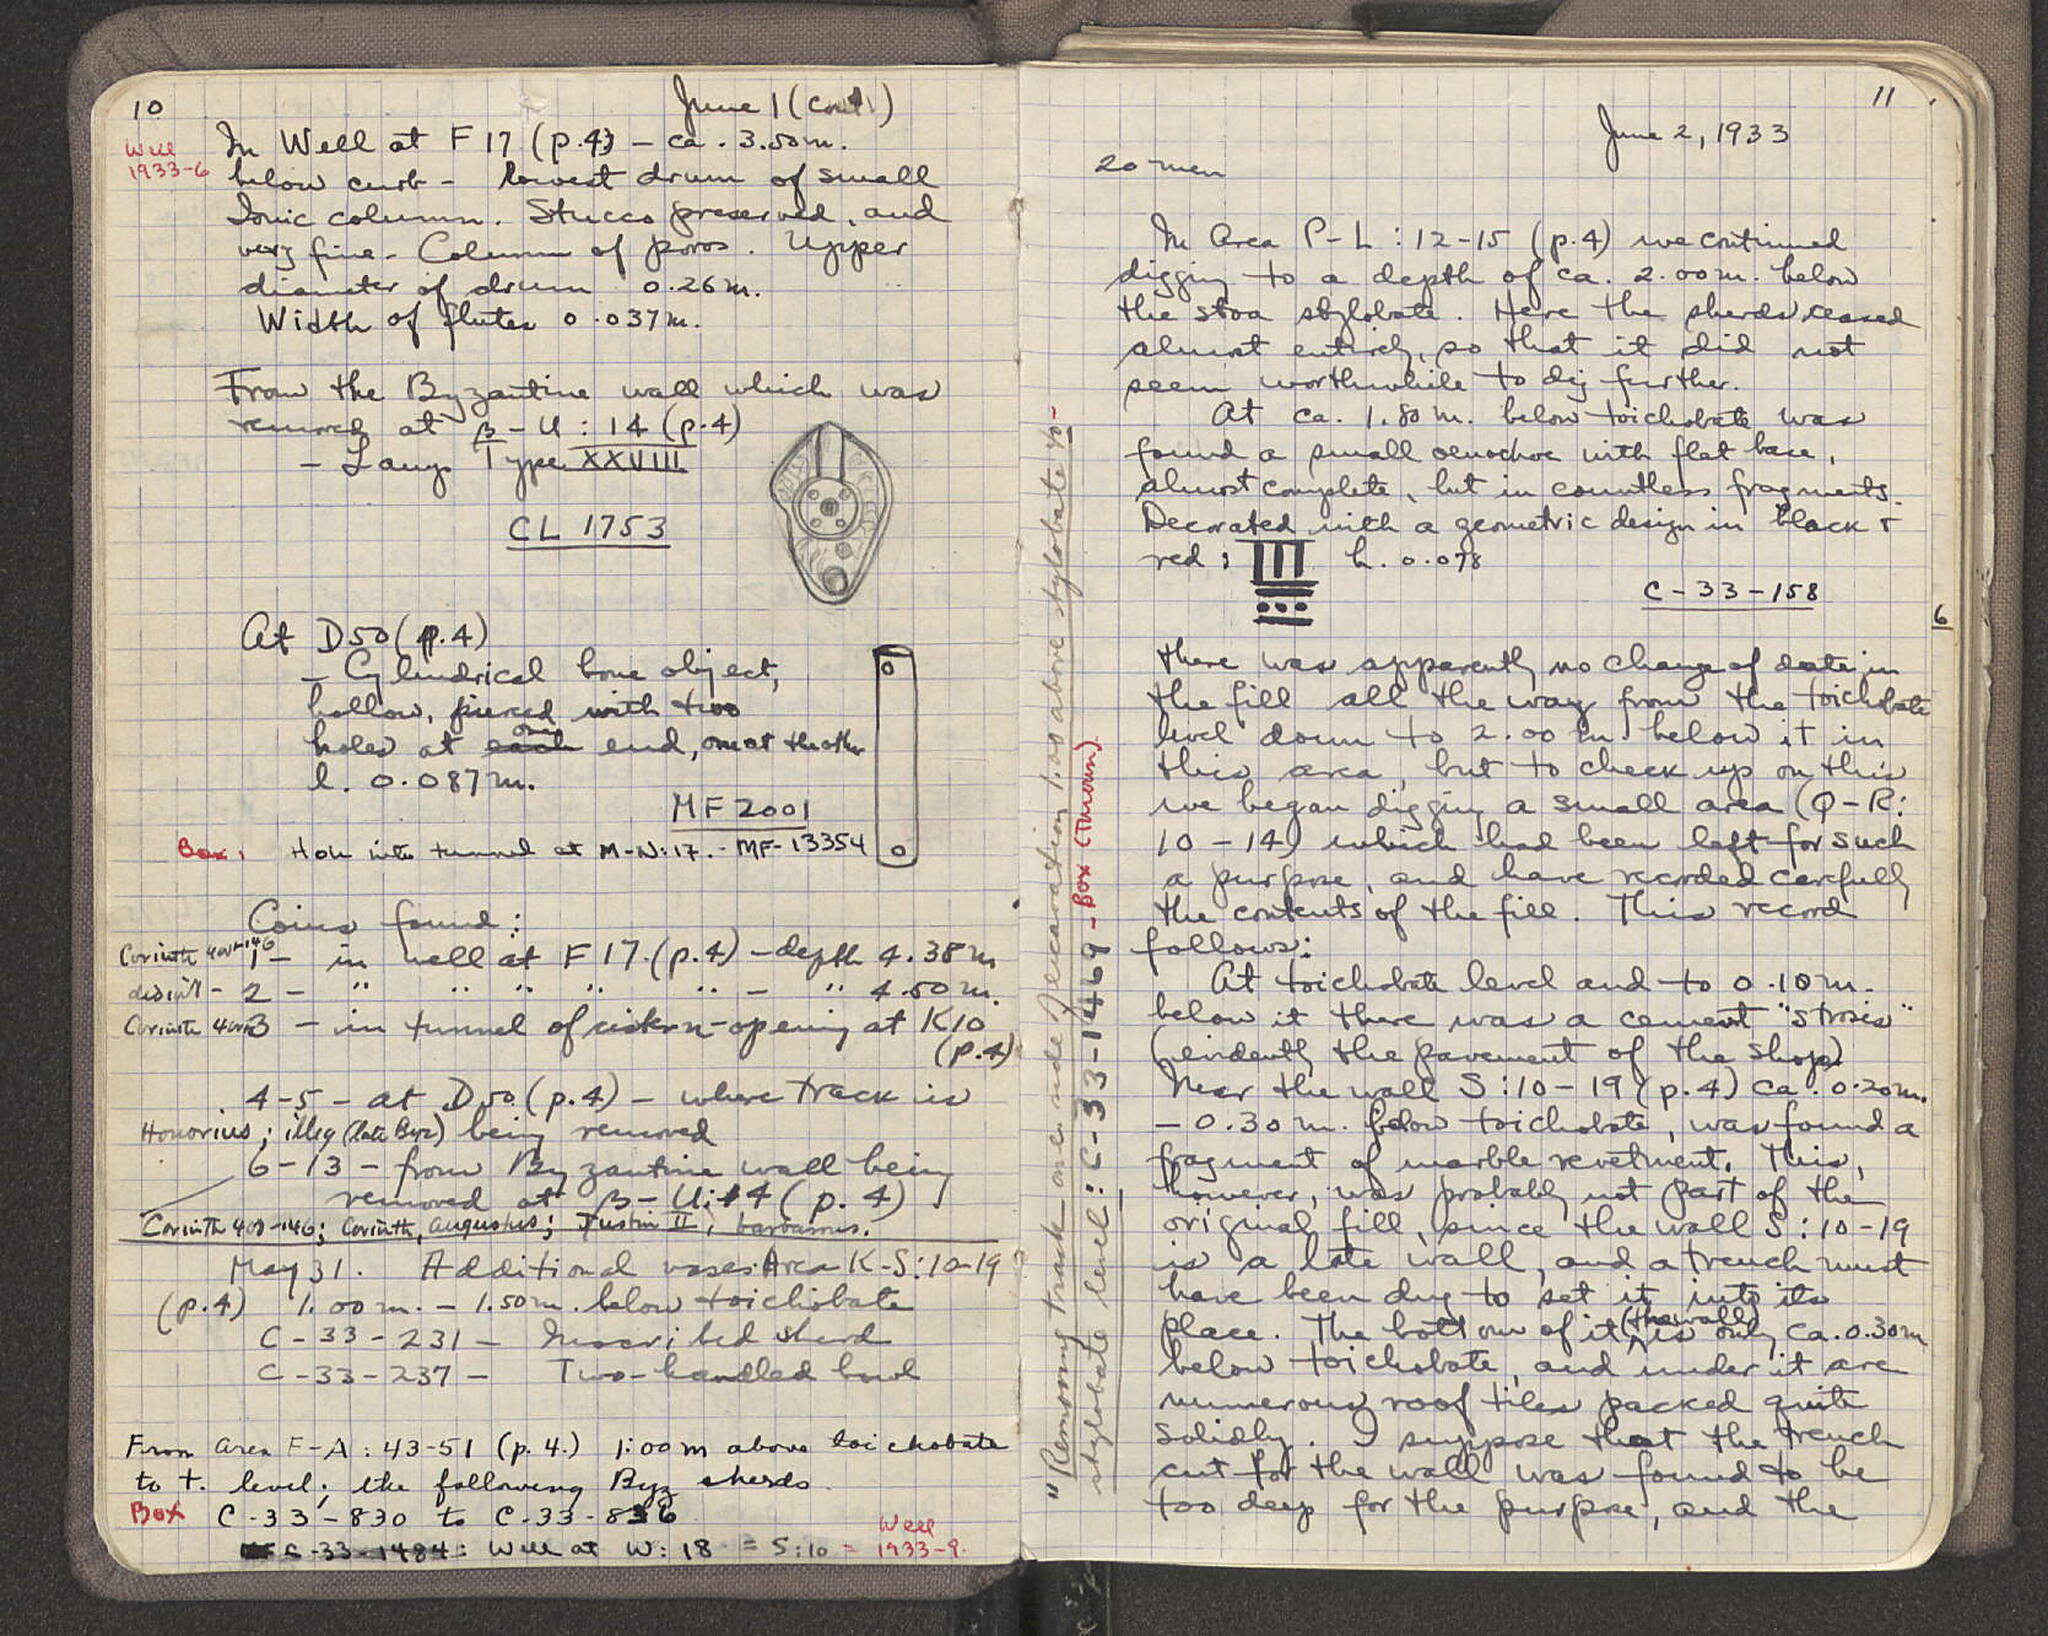 10
June 1 (cont.)
Well
1933-6
In Well at F 17 (p.4) - ca. 3.50 m.
below curb - lowest drum of small
Ionic column. Stucco preserved, and
very fine - Column of poros. Upper
diameter of drum 0.26 m.
Width of flutes 0.037 m.
From the Byzantine wall which was
removed at β - U : 14 (p.4)
- Lamp Type XXVIII
CL 1753
At D50 (p.4)
- Cylindrical bone object,
hollow, pierced with two
holes at each one end, one at the other
l. 0.087 m.
MF 2001
Box: Hole into tunnel at M-N:17. - MF-13354
Coins found:
Corinth 400-146
1 - in well at F 17. (p.4) - depth 4.38 m
disint - 2 - " " " " " - " 4.50 m.
Corinth 3 - in tunnel of cistern-opening at K10
(p.4)
4-5 - at D50 (p.4) - where track is
Honorius; illeg (late Byz) being removed
6-13 - from Byzantine wall being
removed at β - U:14 (p. 4)
Corinth 400-146; Corinth, Augustus; Justin II; barbarous.
May 31. Additional vases: Area K-S:10-19
(p.4) 1.00 m. - 1.50 m. below toichobate
C-33-231 - Inscribed sherd
C-33-237 - Two-handled bowl
From area F-A : 43-51 (p. 4.) 1.00 m above toichobate
to t. level; the following Byz sherds.
Box C-33-830 to C-33-836
C-33-1484: Well at W:18 = S:10 = Well
1933-9.
11
June 2, 1933
20 men
In Area P-L : 12-15 (p.4) we continued
digging to a depth of ca. 2.00 m. below
the stoa stylobate. Here the sherds ceased
almost entirely, so that it did not
seem worthwhile to dig further.
At ca. 1.80 m. below toichobate was
found a small oenochoe with flat base,
almost complete, but in countless fragments.
Decorated with a geometric design in black +
red: h. 0.078
C-33-158
6
There was apparently no change of date in
the fill all the way from the toichobate
level down to 2.00 m. below it in
this area, but to check up on this
we began digging a small area (Q-R:
10-14) which had been left for such
a purpose, and have recorded carefully
the contents of the fill. This record
follows:
At toichobate level and to 0.10 m.
below it there was a cement "strosis"
(evidently the pavement of the shops)
Near the wall S:10-19 (p.4) ca. 0.20 m.
- 0.30 m. below toichobate, was found a
fragment of marble revetment. This,
however, was probably not part of the
original fill, since the wall S:10-19
is a late wall, and a trench must
have been dug to set it into its
place. The bottom of it (the wall) is only ca. 0.30 m
below toichobate, and under it are
numerous roof tiles packed quite
solidly. I suppose that the trench
cut for the wall was found to be
too deep for the purpose, and the
"Removing track on side of excavation 1.00 above stylobate to -
stylobate level: C-33-1469 - Box (Thrown)